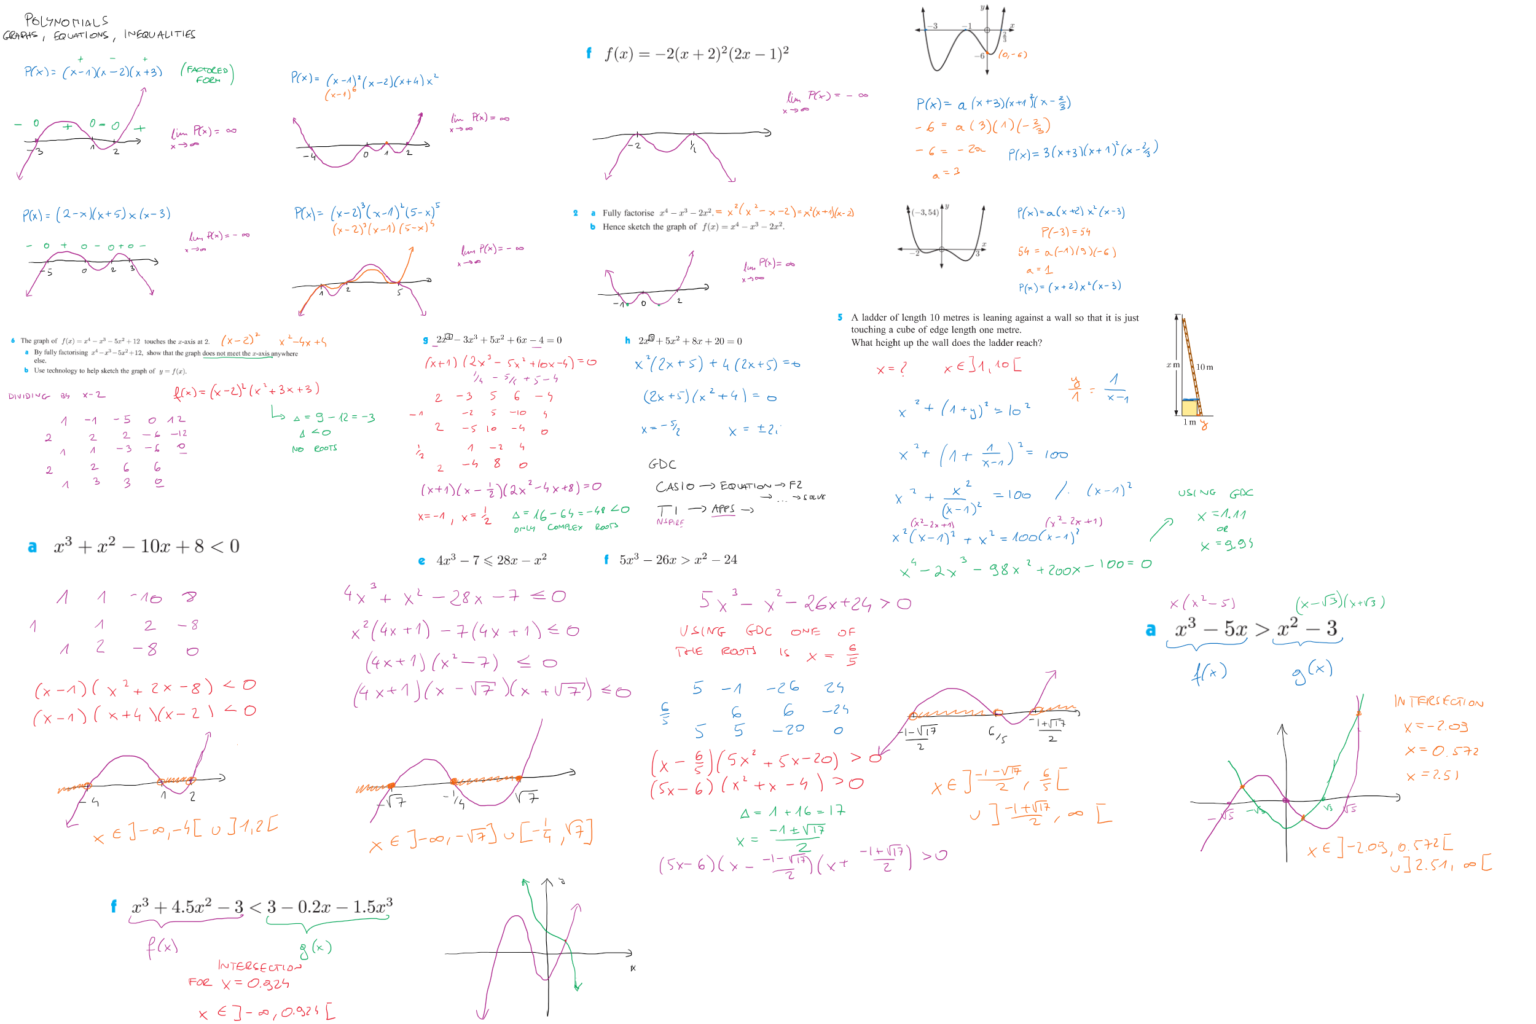 POLYNOMIALS
GRAPHS, EQUATIONS, INEQUALITIES
P(x) = (x-1)(x-2)(x+3) (FACTORED FORM)
+ - +
- 0 + 0 - 0 +
-3 1 2
lim P(x) = ∞
x→∞
P(x) = (x-1)²(x-2)(x+4)x²
(x-1)⁶
-4 0 1 2
lim P(x) = ∞
x→∞
P(x) = (2-x)(x+5)x(x-3)
- 0 + 0 - 0 + 0 -
-5 0 2 3
lim P(x) = -∞
x→∞
P(x) = (x-2)³(x-1)²(5-x)⁵
(x-2)³(x-1)(5-x)⁴
1 2 5
lim P(x) = -∞
x→∞
f f(x) = −2(x + 2)²(2x − 1)²
lim P(x) = -∞
x→∞
-2
2 a Fully factorise x⁴ − x³ − 2x². = x²(x²-x-2) = x²(x+1)(x-2)
b Hence sketch the graph of f(x) = x⁴ − x³ − 2x².
-1 0 2
lim P(x) = ∞
x→∞
-3 -1 2/3 x y
-6 (0,-6)
P(x) = a(x+3)(x+1)²(x-2/3)
-6 = a(3)(1)(-2/3)
-6 = -2a P(x) = 3(x+3)(x+1)²(x-2/3)
a = 3
(−3, 54) y
-2 3 x
P(x) = a(x+2)x²(x-3)
P(-3) = 54
54 = a(-1)(9)(-6)
a = 1
P(x) = (x+2)x²(x-3)
6 The graph of f(x) = x⁴ − x³ − 5x² + 12 touches the x-axis at 2. (x-2)² x²-4x+4
a By fully factorising x⁴ − x³ − 5x² + 12, show that the graph does not meet the x-axis anywhere
else.
b Use technology to help sketch the graph of y = f(x).
DIVIDING BY x-2
f(x) = (x-2)²(x²+3x+3)
↳ Δ = 9-12 = -3
Δ < 0
NO ROOTS
1 -1 -5 0 12
2 2 2 -6 -12
1 1 -3 -6 0
2 2 6 6
1 3 3 0
g 2x⁴ − 3x³ + 5x² + 6x − 4 = 0
(x+1)(2x³-5x²+10x-4) = 0
2 -3 5 6 -4
-1 -2 5 -10 4
2 -5 10 -4 0
1/2 1 -2 4
2 -4 8 0
(x+1)(x-1/2)(2x²-4x+8) = 0
x = -1, x = 1/2 Δ = 16-64 = -48 < 0
ONLY COMPLEX ROOTS
h 2x³ + 5x² + 8x + 20 = 0
x²(2x+5) + 4(2x+5) = 0
(2x+5)(x²+4) = 0
x = -5/2 x = ±2i
GDC
CASIO → EQUATION → F2
→ ... → SOLVE
TI → APPS →
NSPIRE
5 A ladder of length 10 metres is leaning against a wall so that it is just
touching a cube of edge length one metre.
What height up the wall does the ladder reach?
x = ? x ∈ ]1,10[
y/1 = 1/(x-1)
x m 10 m
1 m y
x² + (1+y)² = 10²
x² + (1 + 1/(x-1))² = 100
x² + x²/(x-1)² = 100 /· (x-1)²
(x²-2x+1) (x²-2x+1)
x²(x-1)² + x² = 100(x-1)²
x⁴ - 2x³ - 98x² + 200x - 100 = 0
USING GDC
x = 1.11
OR
x = 9.94
a x³ + x² − 10x + 8 < 0
1 1 -10 8
1 1 2 -8
1 2 -8 0
(x-1)(x²+2x-8) < 0
(x-1)(x+4)(x-2) < 0
-4 1 2
x ∈ ]-∞,-4[ ∪ ]1,2[
e 4x³ − 7 ⩽ 28x − x²
4x³ + x² - 28x - 7 ≤ 0
x²(4x+1) - 7(4x+1) ≤ 0
(4x+1)(x²-7) ≤ 0
(4x+1)(x-√7)(x+√7) ≤ 0
-√7 -1/4 √7
x ∈ ]-∞,-√7] ∪ [-1/4,√7]
f 5x³ − 26x > x² − 24
5x³ - x² - 26x + 24 > 0
USING GDC ONE OF
THE ROOTS IS x = 6/5
5 -1 -26 24
6/5 6 6 -24
5 5 -20 0
(x-6/5)(5x²+5x-20) > 0
(5x-6)(x²+x-4) > 0
Δ = 1+16 = 17
x = (-1±√17)/2
(5x-6)(x - (-1-√17)/2)(x + (-1+√17)/2) > 0
(-1-√17)/2 6/5 (-1+√17)/2
x ∈ ](-1-√17)/2, 6/5[
∪ ](-1+√17)/2, ∞[
x(x²-5) (x-√3)(x+√3)
a x³ − 5x > x² − 3
f(x) g(x)
INTERSECTION
x = -2.09
x = 0.572
x = 2.51
-√5 -√3 √3 √5
x ∈ ]-2.09, 0.572[
∪ ]2.51, ∞[
f x³ + 4.5x² − 3 < 3 − 0.2x − 1.5x³
f(x) g(x)
INTERSECTION
FOR x = 0.924
x ∈ ]-∞, 0.924[